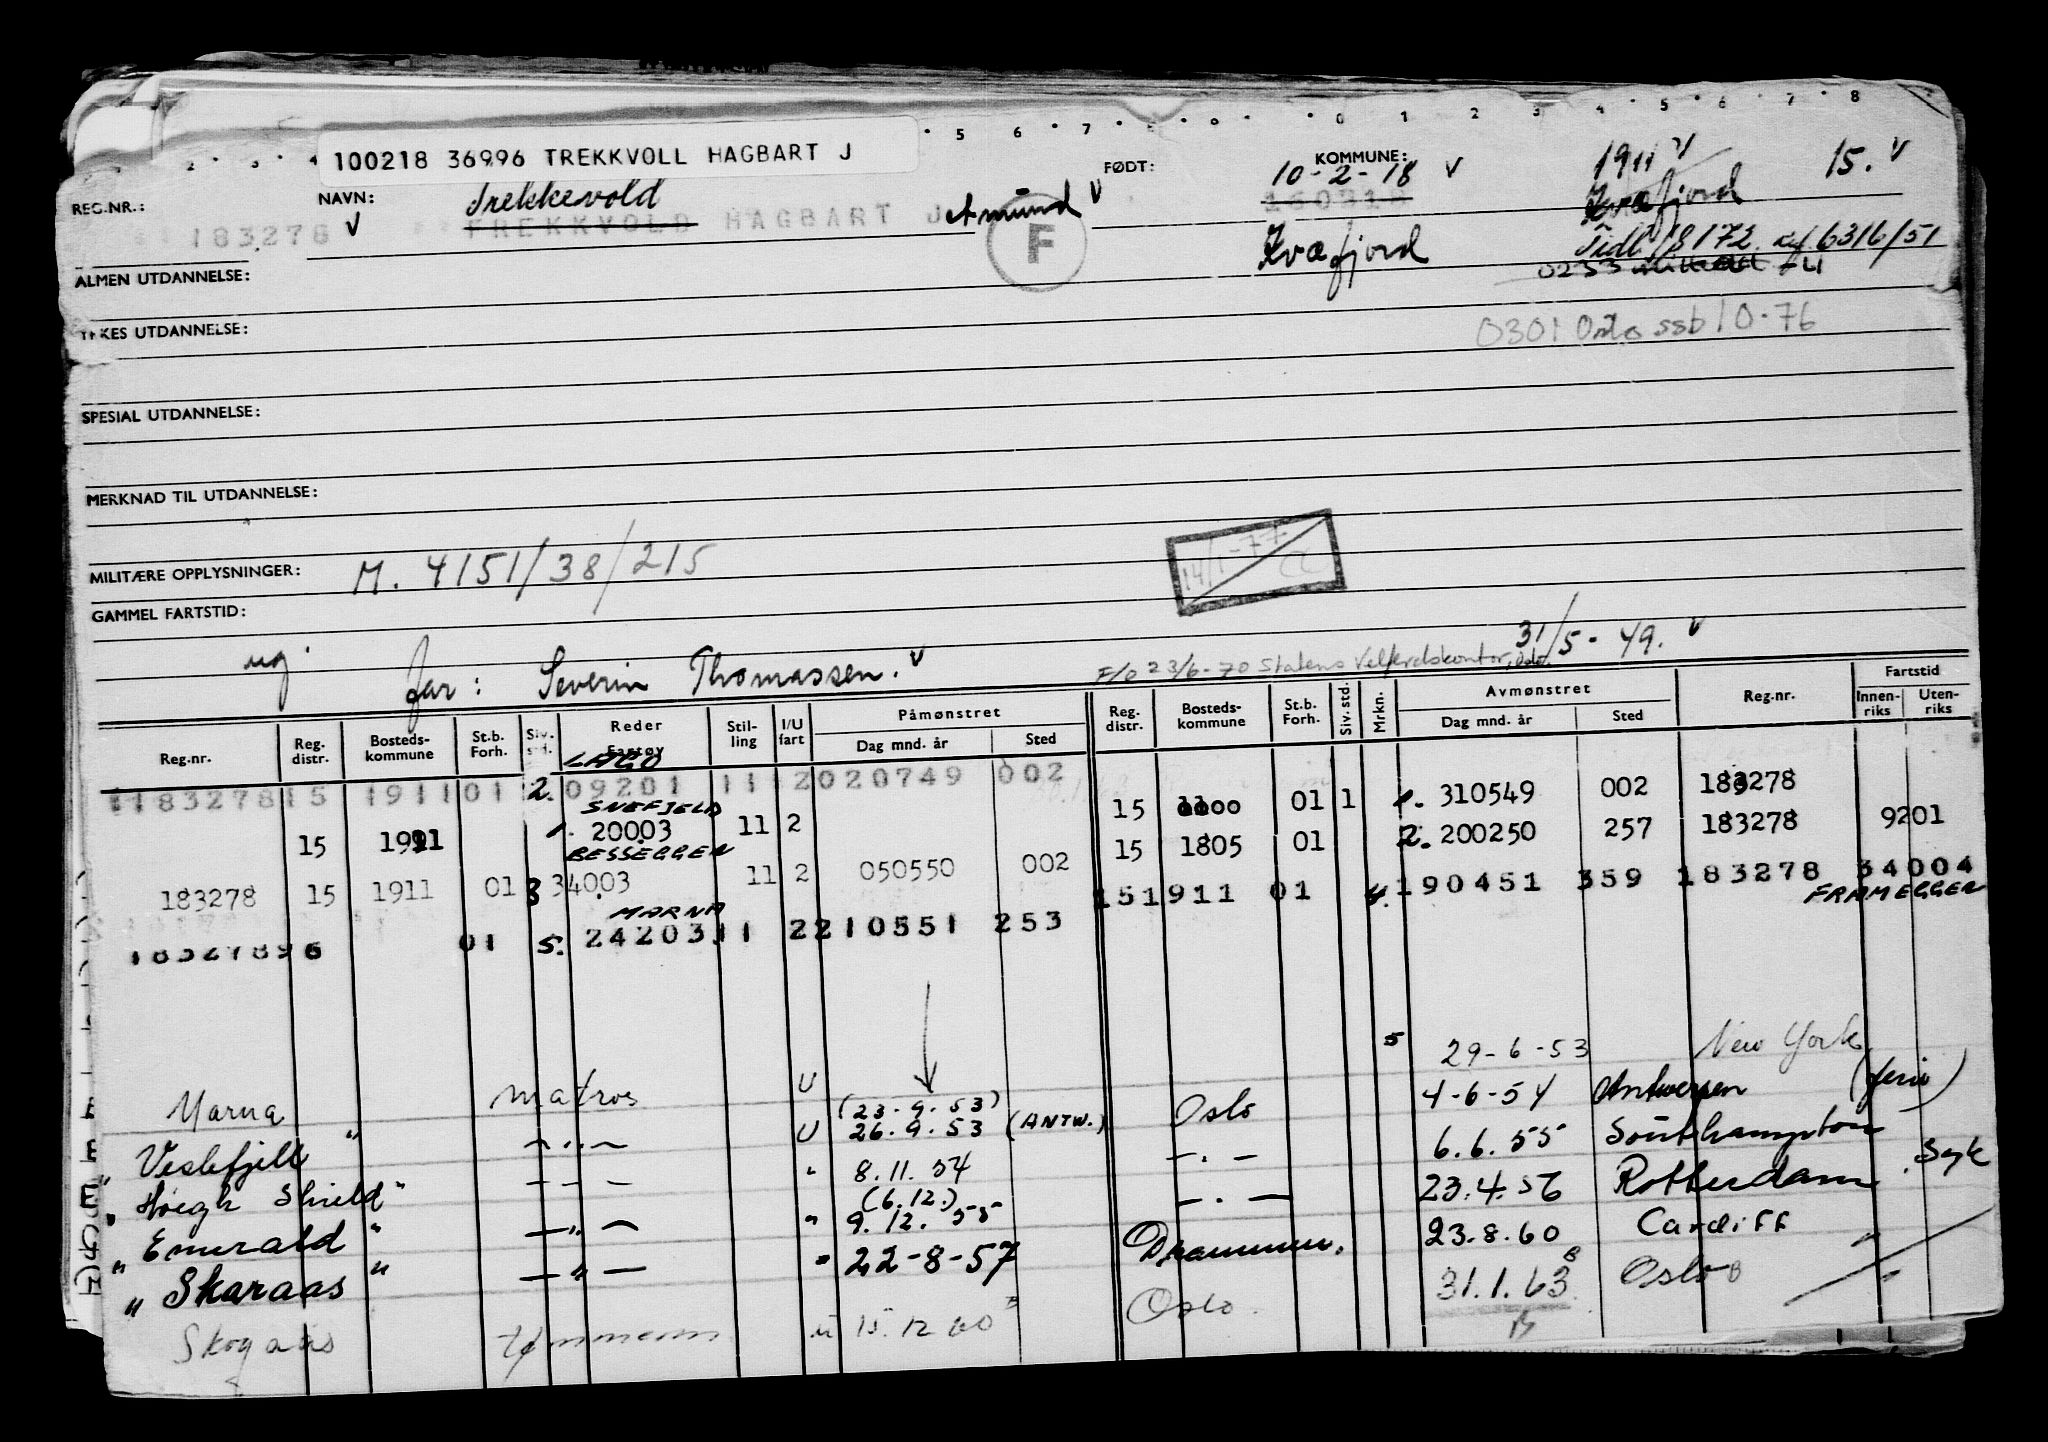 5 6 7 8 9 0 1 2 3 4 5 6 7 8
100218 36996 TREKKVOLL HAGBART J
FØDT: KOMMUNE:
10-2-18 V 1911 V 15. V
REG.NR.: NAVN: Trekkevold Amund V 160318 Kvæfjord
183278 V TREKKVOLD HAGBART J F Kvæfjord Tidl. 18172 6316/51
ALMEN UTDANNELSE: 0233
YRKES UTDANNELSE: 0301 Oslo ssb 10-76
SPESIAL UTDANNELSE:
MERKNAD TIL UTDANNELSE:
MILITÆRE OPPLYSNINGER: M. 4151/38/215 14/1-77
GAMMEL FARTSTID:
ug. far: Severin Thomassen. V F/o 23/6-70 Statens Velferdskontor, Oslo. 31/5-49. V
Reg.nr. Reg. distr. Bosteds-kommune St.b. Forh. Siv. std. Reder Fartøy Stil-ling I/U fart Påmønstret Dag mnd. år Sted Reg. distr. Bosteds-kommune St.b. Forh. Siv. std. Mrkn. Avmønstret Dag mnd. år Sted Reg.nr. Fartstid Innen-riks Uten-riks
LAGO
183278 15 1911 01 2. 09201 11 2 020749 002 15 01 1 1. 310549 002 183278
SNEFJELD
15 1911 1. 20003 11 2 15 1805 01 2. 200250 257 183278 9201
BESSEGGEN
183278 15 1911 01 3 34003 11 2 050550 002 15 1911 01 4. 190451 359 183278 34004
FRAMEGGEN
MARNA
183278 96 01 5. 24203 11 2 210551 253
5 29-6-53 New York
Marna matros U (23.9.53) Oslo 4-6-54 Antwerpen (ferie)
" Veslefjell " — " — U 26.9.53 (ANTW.) — " — 6.6.55 Southampton
" Høegh Shield " — " — " 8.11.54 — " — 23.4.56 Rotterdam Syk
(6.12.)
" Emerald " — " — " 9.12.55 Drammen. 23.8.60 Cardiff "
" Skaraas " — " — " 22-8-57 Oslo. 31.1.63 Oslo "
Skogaas tømmerm u 15.12 60